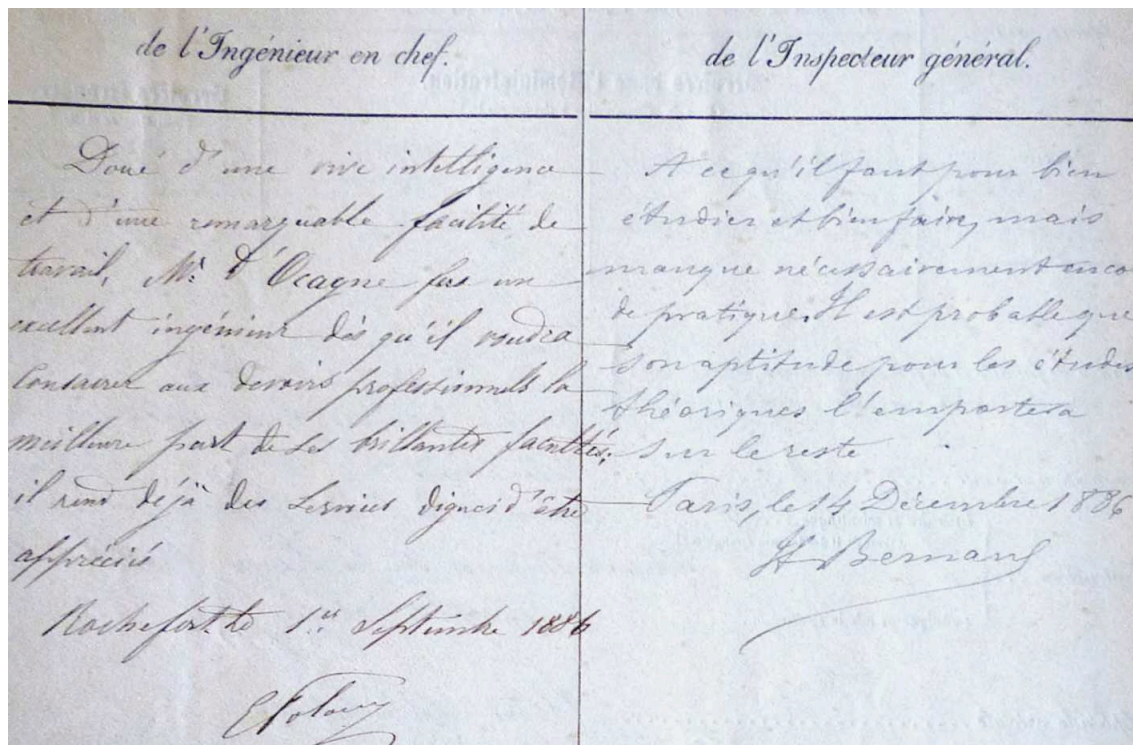 de l'Ingénieur en chef.
Doué d'une vive intelligence
et d'une remarquable facilité de
travail, Mr. d'Ocagne fera un
excellent ingénieur dès qu'il voudra
consacrer aux devoirs professionnels la
meilleure part de ses brillantes facultés;
il rend déjà des services dignes d'être
appréciés
Rochefort le 1er Septembre 1886
de l'Inspecteur général.
A ce qu'il faut pour bien
étudier et bien faire, mais
manque nécessairement enco
de pratique. Il est probable que
son aptitude pour les études
théoriques l'emportera
sur le reste
Paris, le 14 Décembre 1886